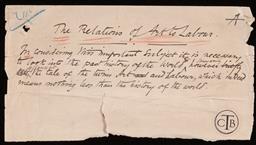 A
The Relations of Art to Labour.
In considering this important subject it is necessary
to look into the past history of the World, however briefly
the tale of the terms Art and Labour, which indeed
means nothing less than the history of the world.
CTB